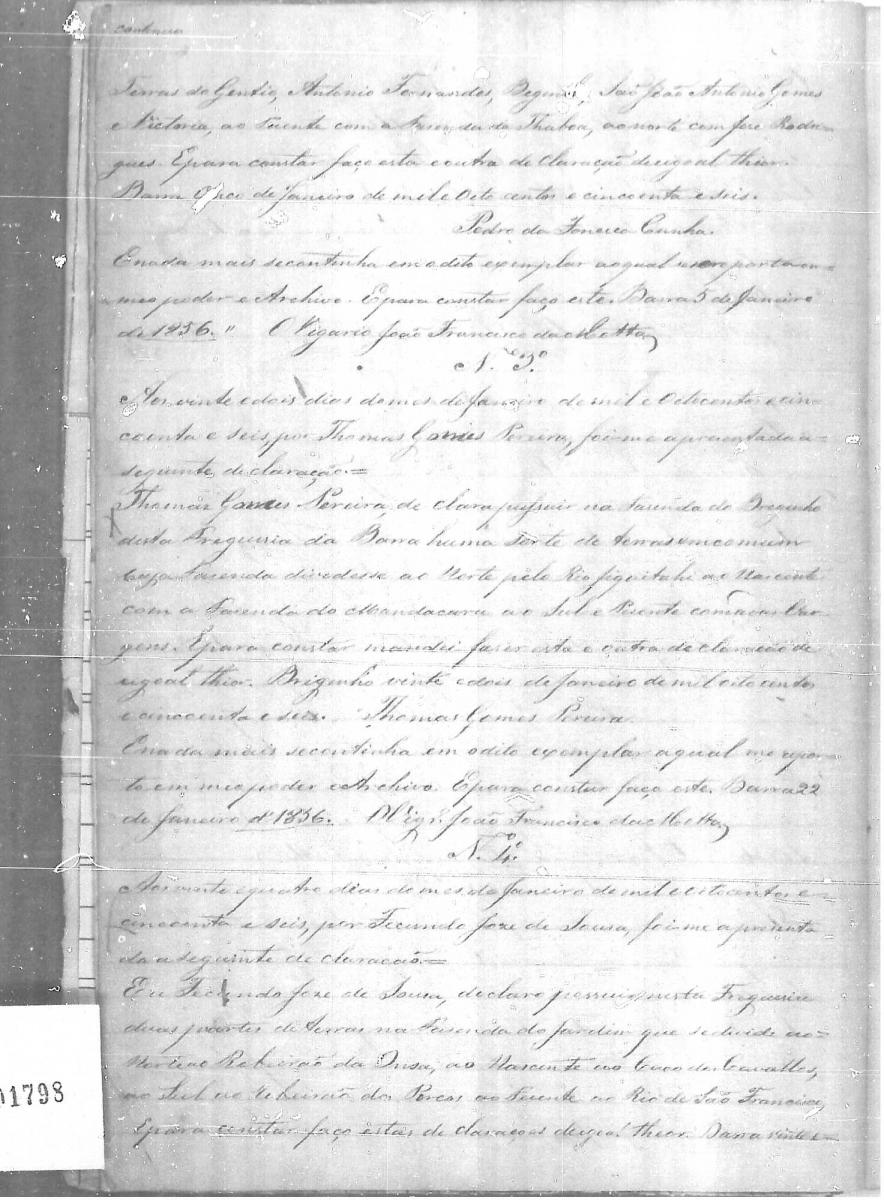 Terras do Gentio, Antonio Fernandes, Beguné, São João Antonio Gomes
e Victoria, ao Puente com a Fasenda da Thaboa, ao norte com Joze Rodri-
gues. Epara constar faço esta e outra de claração deeigoal thior.
Barra de Janeiro de mil e Oito centos e cincoenta e seis.
Pedro da Fonceca Cunha.
Enada mais secontinha em odito exemplar aoqual me reporto em
meo poder e Archivo. Epara constar faço este. Barra 5 de Janeiro
de 1856. " O Vigario João Francisco da Motta
N.º 3.º
Aos vinte edois dias domes de Janeiro de mil e Oitocentos ecin-
coenta e seis, por Thomas Gomes Pereira, foi-me apresentada a
seguinte de claração. =
Thomas Gomes Pereira, de clara pussuir na Fasenda do Breginho
desta Freguesia da Barra huma Sorte de terras em comum
Cuja Fasenda dividesse ao Norte pelo Rio ao Nascente
com a Fasenda do Mandacaru ao Sul e Poente com as Var-
gens. Epara constar mandei faser esta e outra de claração de
eigoal thior. Briginho vinte edois de Janeiro de mil oito centos
e cincoenta e seis. Thomas Gomes Pereira.
Enada mais secontinha em odito exemplar aqual me repor-
to em meo poder e Archivo. Epara constar faço este. Barra 22
de Janeiro d'1856. O Vigr.º João Francisco da Motta
N. 4.º
Aos vinte equatro dias do mes de Janeiro de mil e oitocentos e
cincoenta e seis, por Fecundo Joze de Sousa, foi-me apresenta-
da a seguinte de claracão. =
Eu Fecundo Joze de Sousa, declaro possuir nesta Freguesia
duas partes de terras na Fasenda do Jardim que sedivide ao
Norte ao Rebeirão da Onsa, ao Nascente ao Cavallos,
ao Sul ao Rebeirão dos Porcos ao Puente ao Rio de São Francisco,
Epara constar faço estas de claraçoes deigoal Theor. Barra vinte e
01798